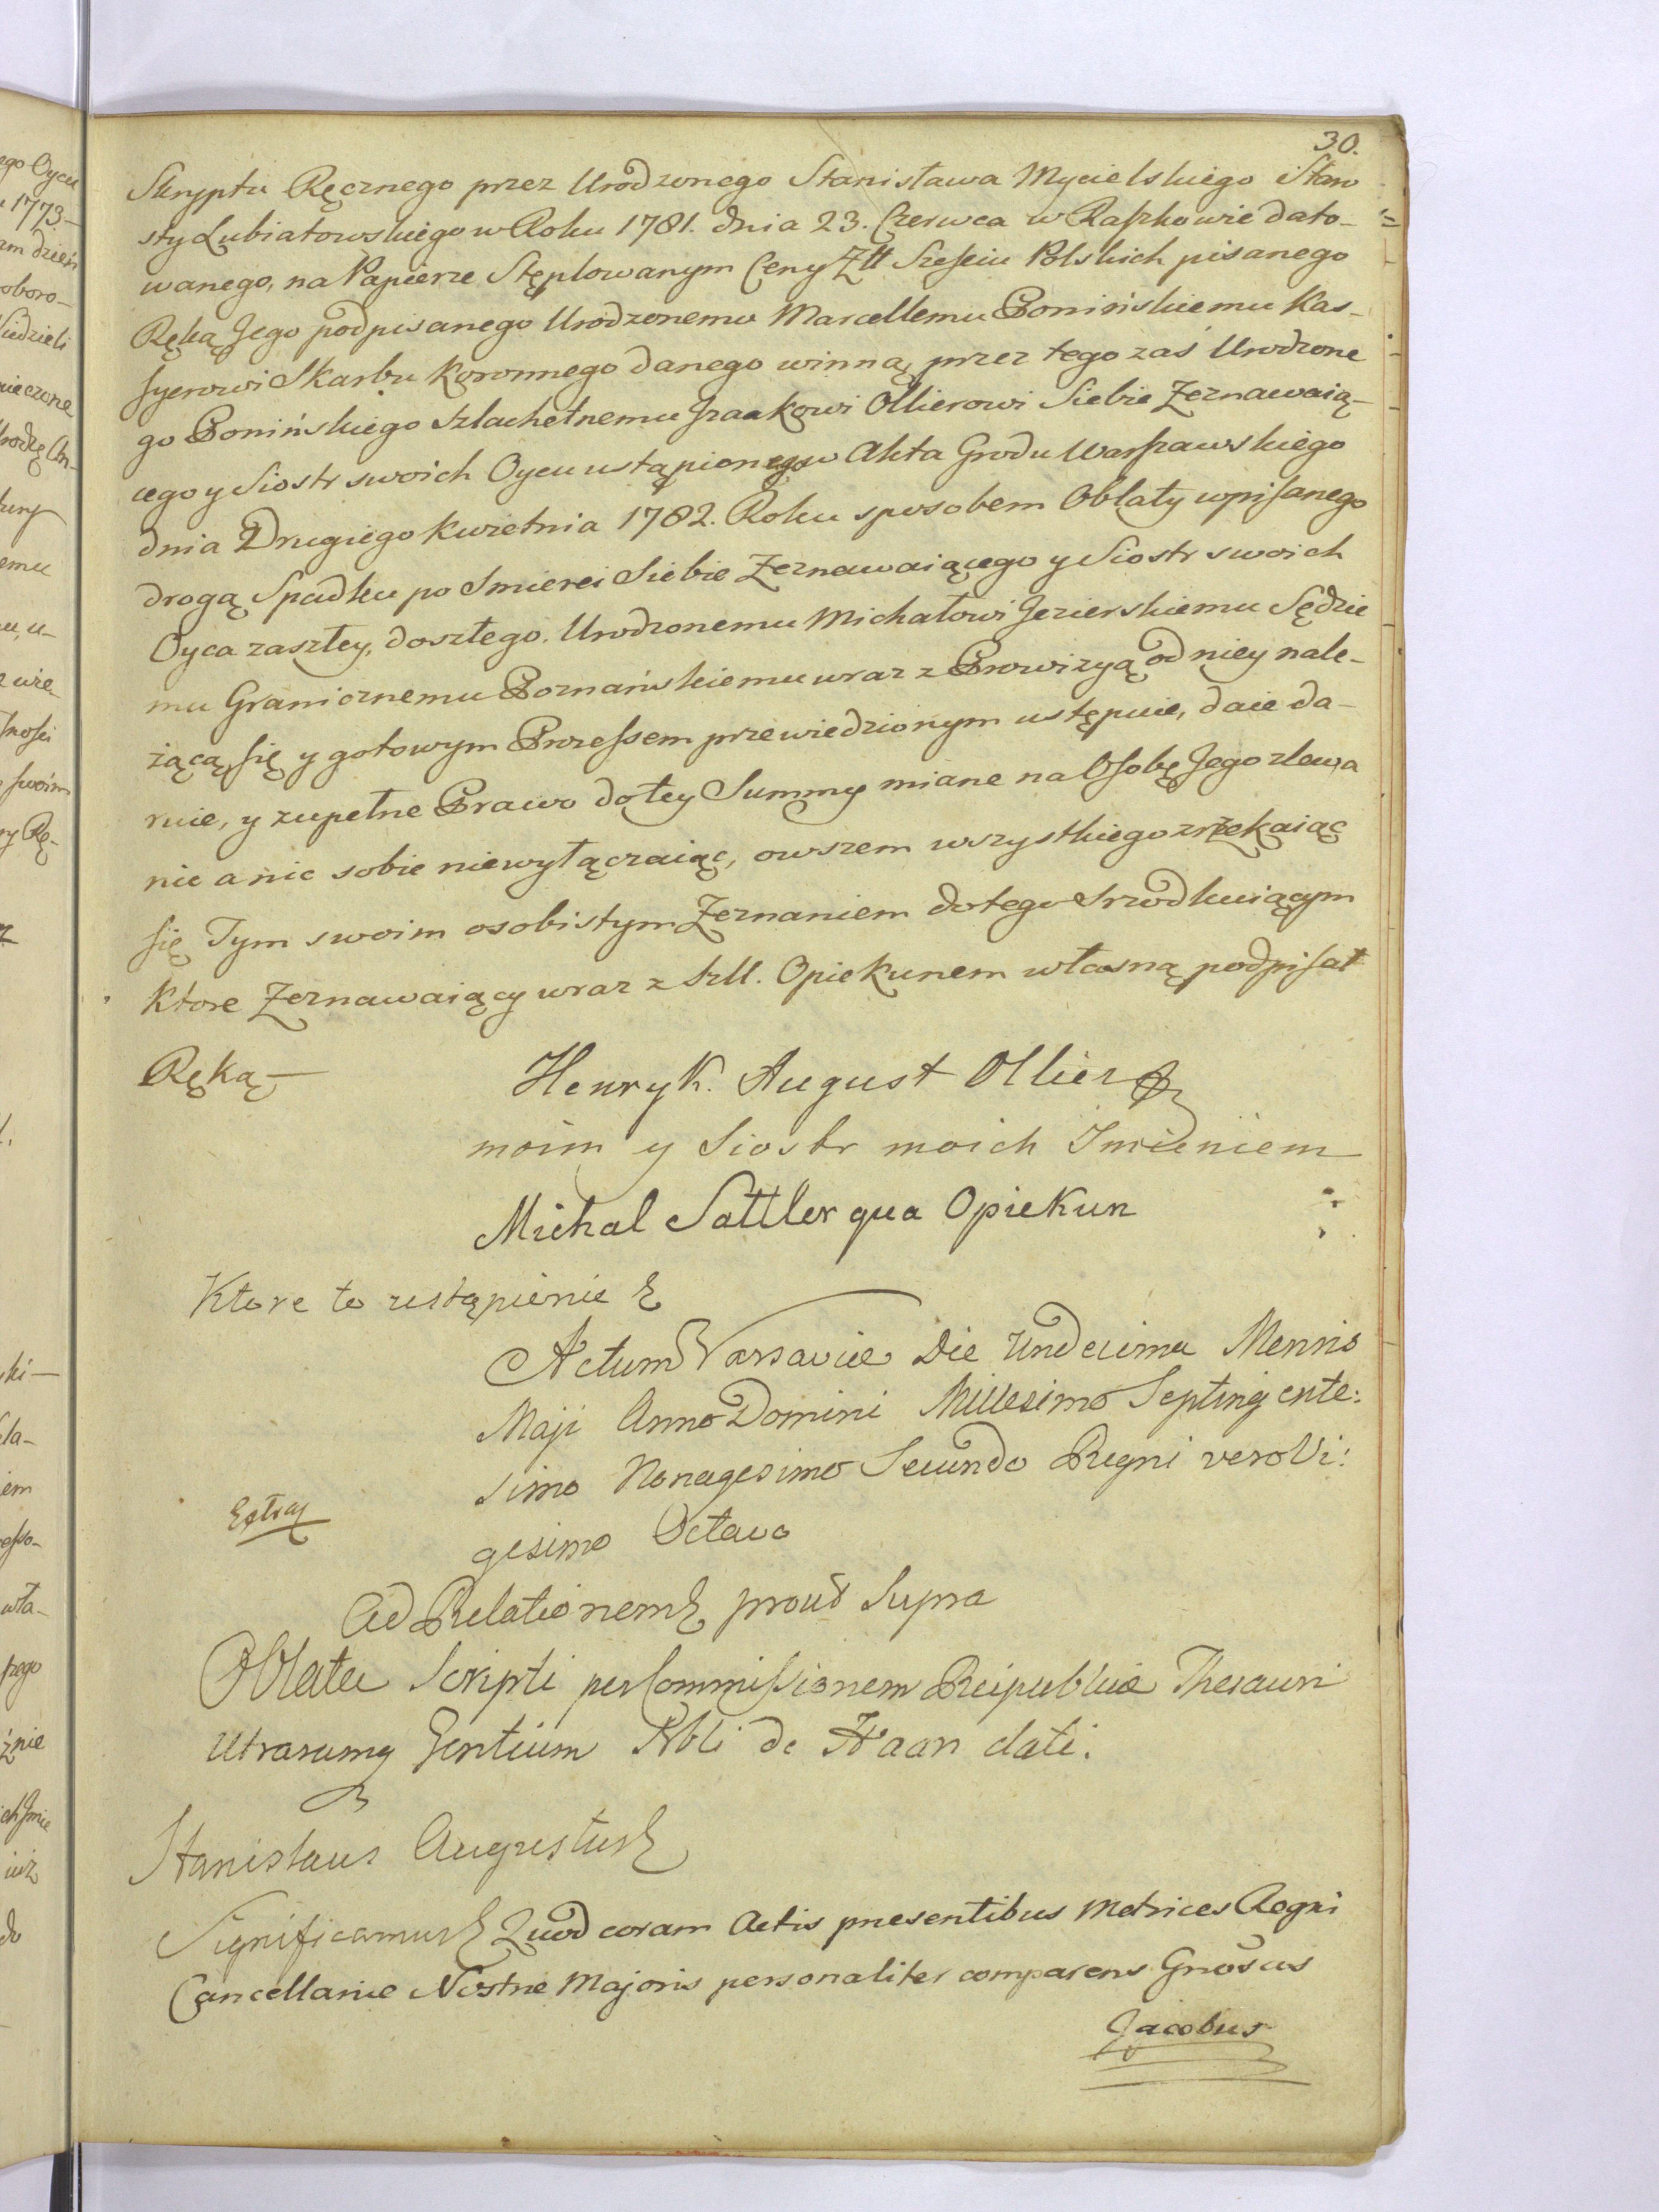 30.
Skryptu Ręcznego przez Urodzonego Stanisława Mycielskiego Staro
sty Lubiatowskiego w Roku 1781. dnia 23. Czerwca w Raszkowie dato-
wanego, na Papierze Stęplowanym Ceny Złł Sześciu Polskich pisanego
Ręką Jego podpisanego Urodzonemu Marcellemu Ponińskiemu Kas-
syerowi Skarbu Koronnego danego winną, przez tego zaś Urodzone
go Ponińskiego Szlachetnemu Izaakowi Ollierowi Siebie Zeznawaią-
cego y Siostr swoich Oycu ustąpionego w Akta Grodu Warszawskiego
dnia Drugiego Kwietnia 1782. Roku sposobem Oblaty wpisanego
drogą Spadku po Smierci Siebie Zeznawaiącego y Siostr swoich
Oyca zaszłey, doszłego. Urodzonemu Michałowi Jezierskiemu Sędzie
mu Granicznemu Poznańskiemu wraz z Prowizyą od niey nale-
żącą się y gotowym Processem przewiedzionym ustępuie, daie da-
ruie, y zupełne Prawo do tey Summy miane na Osobę Jego zlewa
nic a nic sobie niewyłączaiąc, owszem wszystkiego zrzekaiąc
się Tym swoim osobistym Zeznaniem do tego srzodkuiącym
Ktore Zeznawaiący wraz z Szll. Opiekunem własną podpisał
Ręką—
Henryk. August Ollier
moim y Siostr moich Imieniem
Michal Sattler qua Opiekun
Ktore to ustąpienie
Actum Varsaviæ Die Undecima Mensis
Maji Anno Domini Millesimo Septingente:
simo Nonagesimo Secundo Regni vero Vi:
gesimo Octavo
Ad Relationem prout Supra
Oblata Scripti per Commissionem Reipublicæ Thesauri
Utrarumq Gentium Nbli de Haan dati.
Stanislaus Augustus
Significamus Quod coram Actis præsentibus Metrices Regni
Cancellariæ Nostræ Majoris personaliter comparens Gnosus
Jacobus